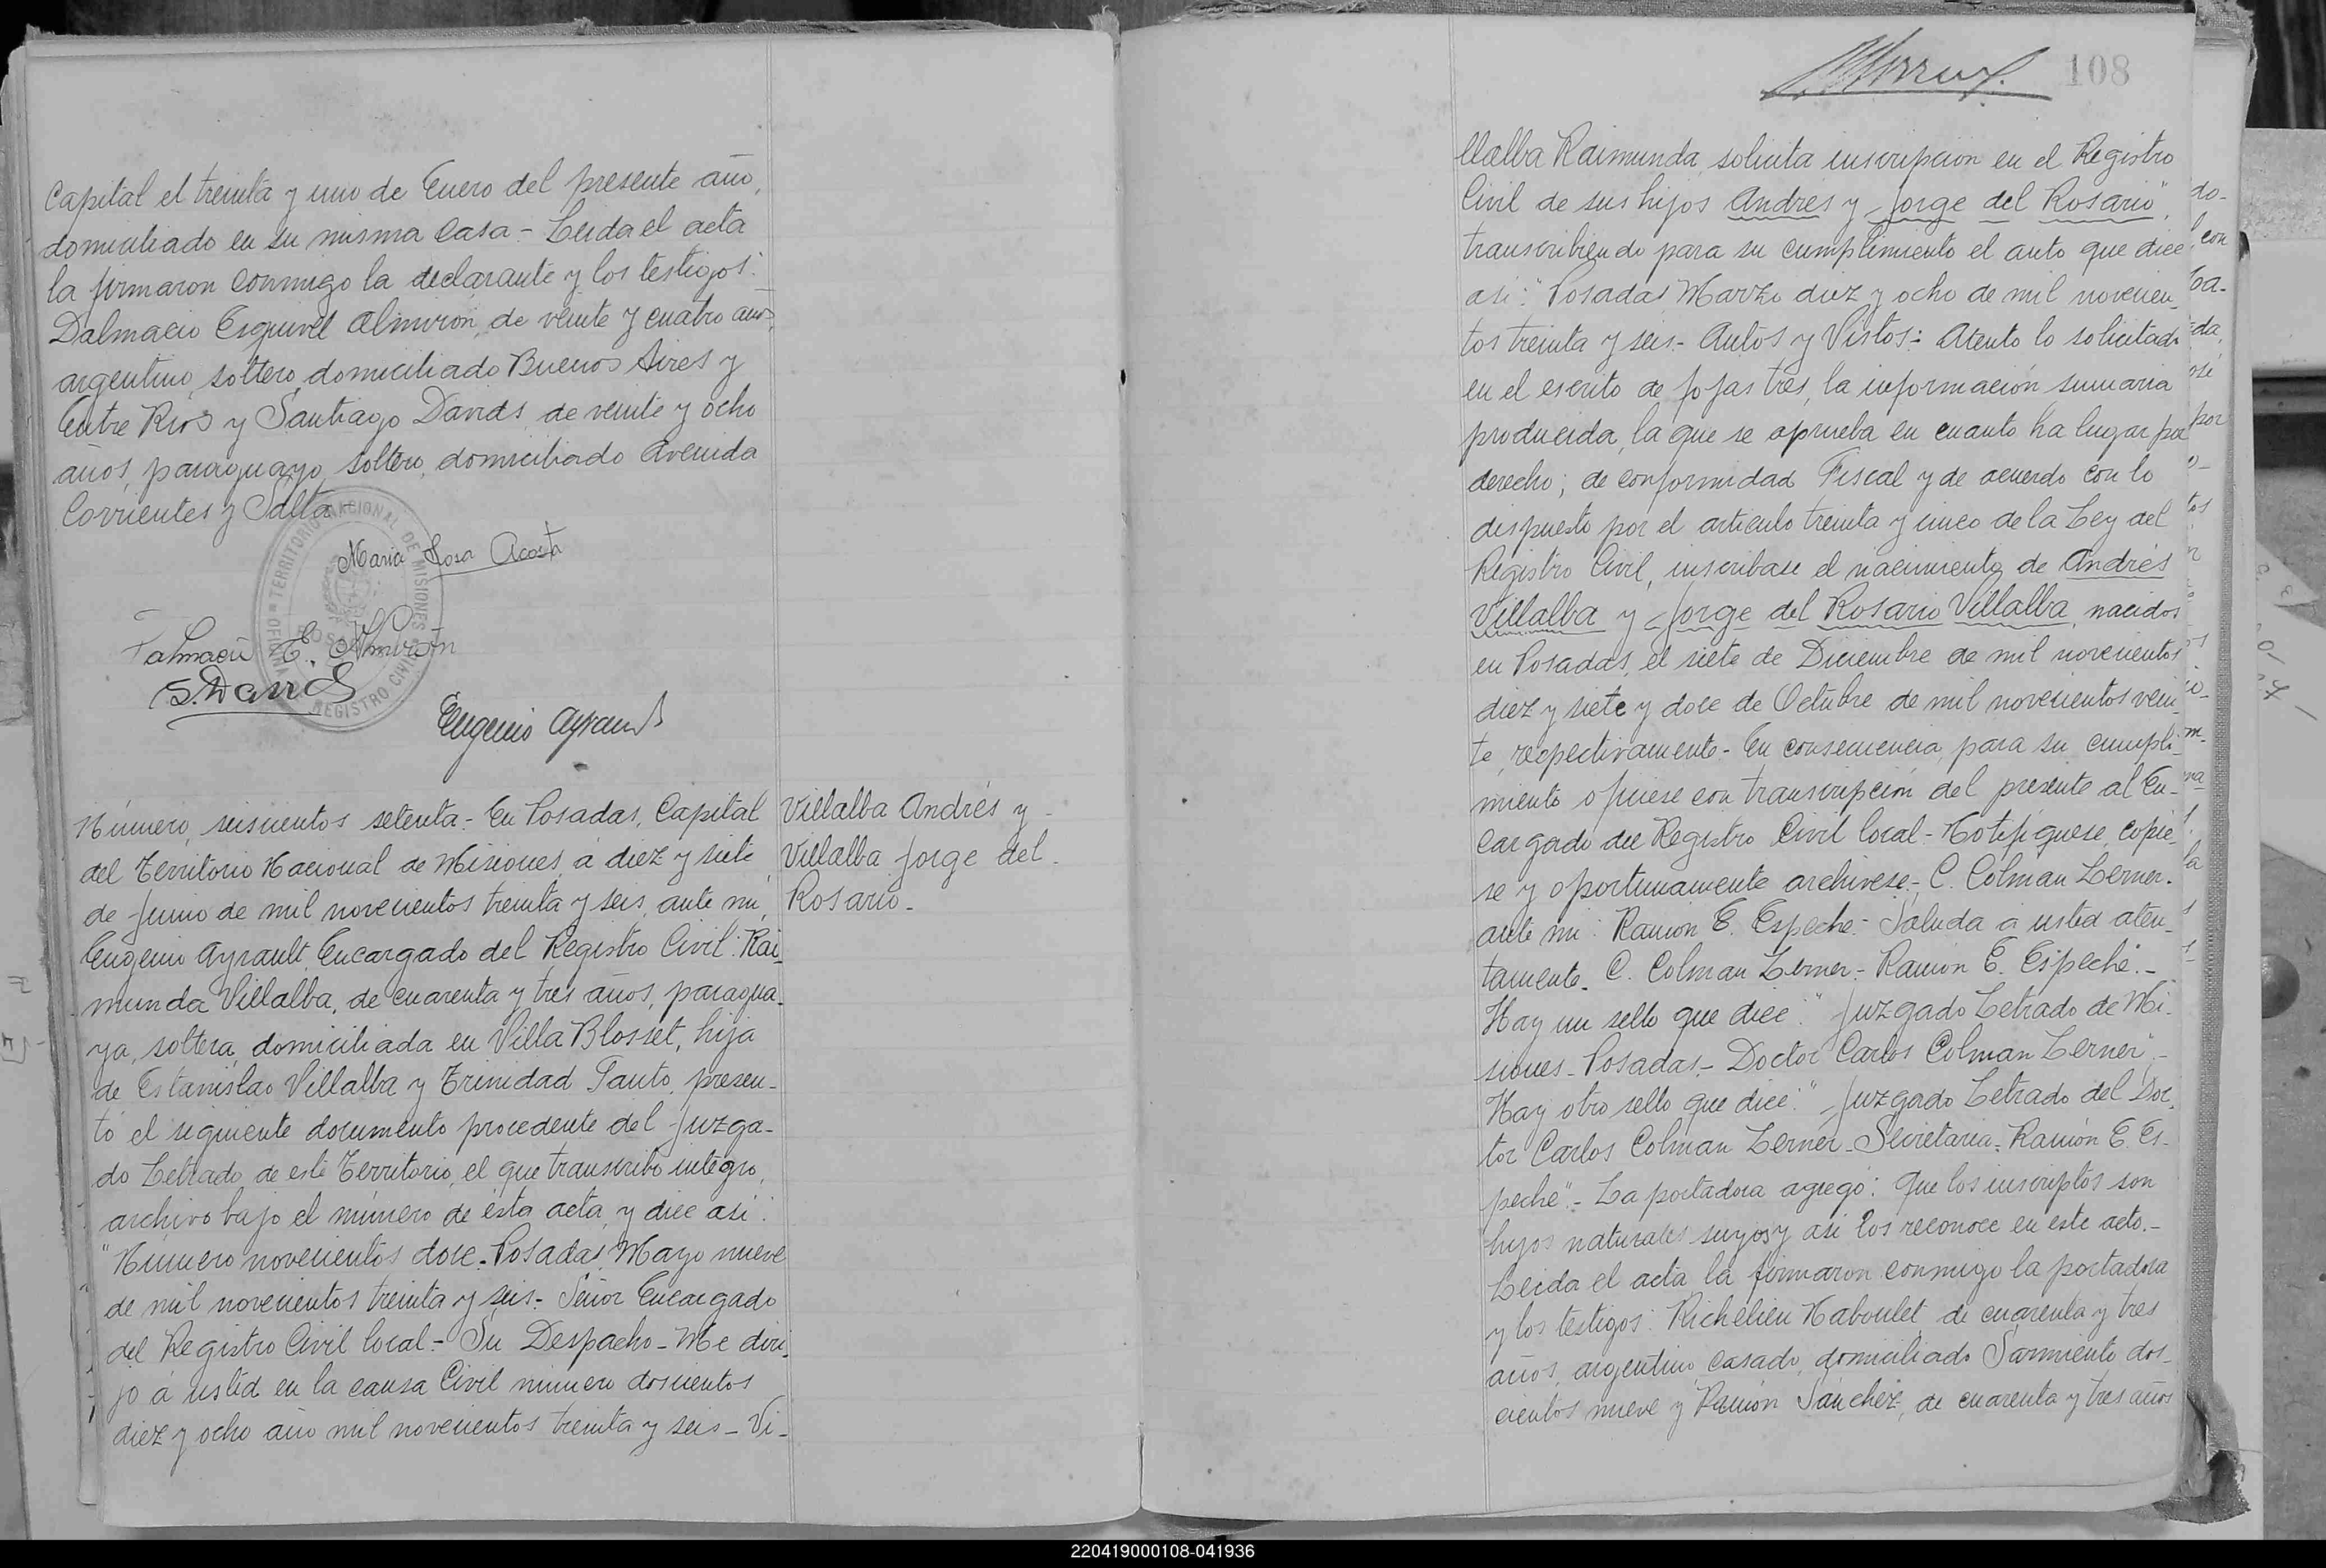 Capital el treinta y uno de Enero del presente año,
domiciliado en su misma casa - Leida el acta
la firmaron conmigo la declarante y los testigos:
Dalmacio Esquivel Almirón, de veinte y cuatro años,
argentino, soltero, domiciliado Buenos Aires y
Entre Rios y Santiago Davids, de veinte y ocho
años, paraguayo, soltero, domiciliado Avenida
Corrientes y Salta
TERRITORIO NACIONAL DE MISIONES
REGISTRO CIVIL
Maria Sosa Acosta
Dalmacio E. Almirón
S. Davids
Eugenio Ayrault
Número, seiscientos setenta - En Posadas, Capital
del Territorio Nacional de Misiones, á diez y siete
de Junio de mil novecientos treinta y seis, ante mi,
Eugenio Ayrault, Encargado del Registro Civil: Rai-
munda Villalba, de cuarenta y tres años, paragua-
ya, soltera, domiciliada en Villa Blosset, hija
de Estanislao Villalba y Trinidad Tanto, presen-
tó el siguiente documento procedente del Juzga-
do Letrado de este Territorio, el que transcribo integro,
archivo bajo el número de esta acta, y dice asi:
"Número novecientos doce - Posadas, Mayo nueve
de mil novecientos treinta y seis - Señor Encargado
del Registro Civil local - Su Despacho - Me diri-
jo á usted en la causa Civil número doscientos
diez y ocho año mil novecientos treinta y seis - Vi-
Villalba Andrés y
Villalba Jorge del
Rosario -
108
llalba Raimunda, solicita inscripción en el Registro
Civil de sus hijos Andres y Jorge del Rosario",
transcribiendo para su cumplimiento el auto que dice
asi: "Posadas Marzo diez y ocho de mil novecien-
tos treinta y seis - Autos y Vistos: Atento lo solicitado
en el escrito de fojas tres, la información sumaria
producida, la que se aprueba en cuanto ha lugar por
derecho; de conformidad Fiscal y de acuerdo con lo
dispuesto por el articulo treinta y cinco de la Ley del
Registro Civil, inscribase el nacimiento de Andrés
Villalba y Jorge del Rosario Villalba, nacidos
en Posadas, el siete de Diciembre de mil novecientos
diez y siete y doce de Octubre de mil novecientos vein-
te, respectivamente - En consecuencia, para su cumpli-
miento ofíciese con transcripción del presente al En-
cargado del Registro Civil local - Notifíquese, cópie-
se y oportunamente archívese - C. Colman Lerner.
ante mi: Ramon E. Espeche - Saluda á usted aten-
tamente. C. Colman Lerner - Ramon E. Espeche. -
Hay un sello que dice: "Juzgado Letrado de Mi-
siones - Posadas - Doctor Carlos Colman Lerner" -
Hay otro sello que dice: "Juzgado Letrado del Doc-
tor Carlos Colman Lerner - Secretaria - Ramón E. Es-
peche" - La portadora agregó: Que los inscriptos son
hijos naturales suyos y asi los reconoce en este acto. -
Leida el acta la firmaron conmigo la portadora
y los testigos: Richelieu Naboulet, de cuarenta y tres
años, argentino, casado, domiciliado Sarmiento dos-
cientos nueve y Ramón Sánchez, de cuarenta y tres años
220419000108-041936